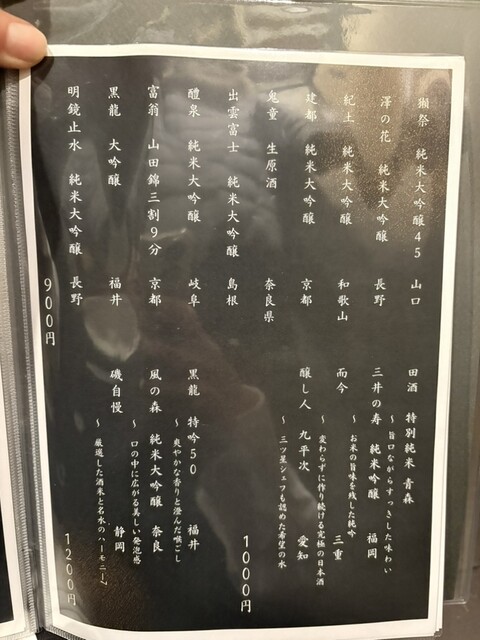 獺祭 純米大吟醸45 山口
澤の花 純米大吟醸 長野
紀土 純米大吟醸 和歌山
建都 純米大吟醸 京都
鬼童 生原酒 奈良県
出雲富士 純米大吟醸 島根
醴泉 純米大吟醸 岐阜
富翁 山田錦三割9分 京都
黒龍 大吟醸 福井
明鏡止水 純米大吟醸 長野
900円
田酒 特別純米 青森
～旨口ながらすっきりした味わい
三井の寿 純米吟醸 福岡
～お米の旨味を残した純吟
而今 三重
～変わらずに作り続ける究極の日本酒
醸し人 九平次 愛知
～三ツ星シェフも認めた希望の水
1000円
黒龍 特吟50 福井
～爽やかな香りと澄んだ喉ごし
風の森 純米大吟醸 奈良
～口の中に広がる美しい発泡感
磯自慢 静岡
～厳選した酒米と名水のハーモニー
1200円